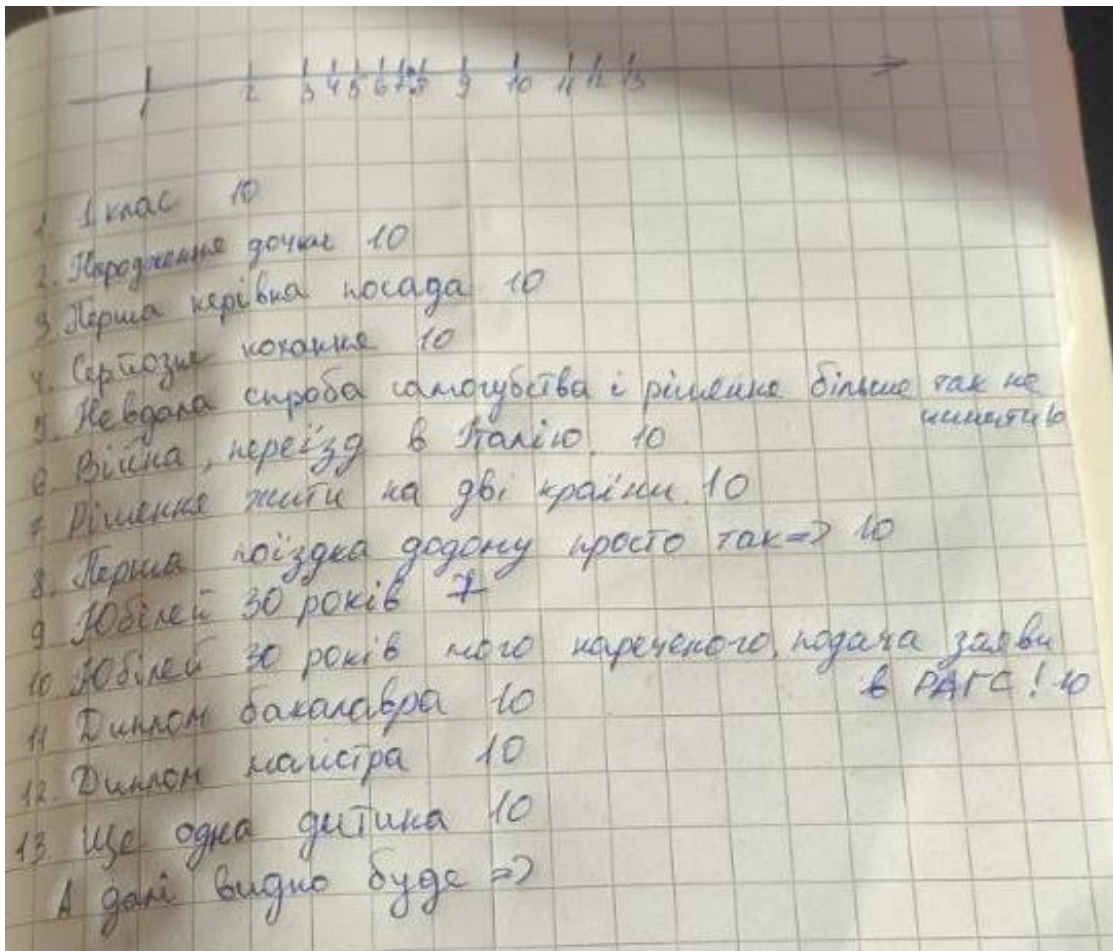 1 2 3 4 5 6 7 8 9 10 11 12 13
1 1 клас 10
2. Народження дочки 10
3 Перша керівна посада 10
4. Серйозне кохання 10
5. Невдала спроба самогубства і рішення більше так не
чинити 10
6. Війна, переїзд в Італію. 10
7 Рішення жити на дві країни. 10
8. Перша поїздка додому просто так => 10
9 Ювілей 30 років 7
10 Ювілей 30 років мого нареченого, подача заяви
в РАГС! 10
11 Диплом бакалавра 10
12. Диплом магістра 10
13 Ще одна дитина 10
А далі видно буде =>